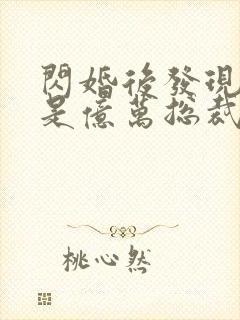 閃婚後發現
是億萬總裁
桃心然